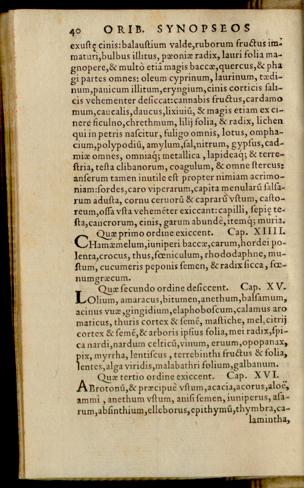 40 ORIB. SYNOPSEOS
exustę cinis: balaustium valde, ruborum fructus im-
maturi, bulbus illitus, pæoniæ radix, lauri folia ma-
gnopere, & multò etiã magis baccæ, quercus, & pha
gi partes omnes: oleum cyprinum, laurinum, tædi-
num, panicum illitum, eryngium, cinis corticis sali-
cis vehementer desiccat: cannabis fructus, cardamo
mum, caucalis, daucus, lixiuiũ, & magis etiam ex ci-
nere ficulno, chrethmum, lilij folia, & radix, lichen
qui in petris nascitur, fuligo omnis, lotus, ompha-
cium, polypodiũ, amylum, sal, nitrum, gypsus, cad-
miæ omnes, omniaq; metallica, lapideaq; & terre-
stria, testa clibanorum, coagulum, & omne stercus:
anserum tamen inutile est propter nimiam acrimo-
niam: sordes, caro viperarum, capita menularũ salsa-
rum adusta, cornu ceruorũ & caprarũ vstum, casto-
reum, ossa vsta vehemẽter exiccant: capilli, sepię te-
sta, cancrorum, cinis, garum abundè, itemq; muria.
Quæ primo ordine exiccent. Cap. XIIII.
CHamæmelum, iuniperi baccæ, carum, hordei po-
lenta, crocus, thus, fœniculum, rhododaphne, mu-
stum, cucumeris peponis semen, & radix sicca, fœ-
numgræcum.
Quæ secundo ordine desiccent. Cap. XV.
LOlium, amaracus, bitumen, anethum, balsamum,
acinus vuæ, gingidium, elaphoboscum, calamus aro
maticus, thuris cortex & semẽ, mastiche, mel, citrij
cortex & semẽ, & arboris ipsius folia, mei radix, spi-
ca nardi, nardum celticũ, vinum, eruum, opopanax,
pix, myrrha, lentiscus, terebinthi fructus & folia,
lentes, alga viridis, malabathri folium, galbanum.
Quæ tertio ordine exiccent. Cap. XVI.
ABrotonũ, & præcipuè vstum, acacia, acorus, aloë,
ammi, anethum vstum, anisi semen, iuniperus, asa-
rum, absinthium, elleborus, epithymũ, thymbra, ca-
lamintha,